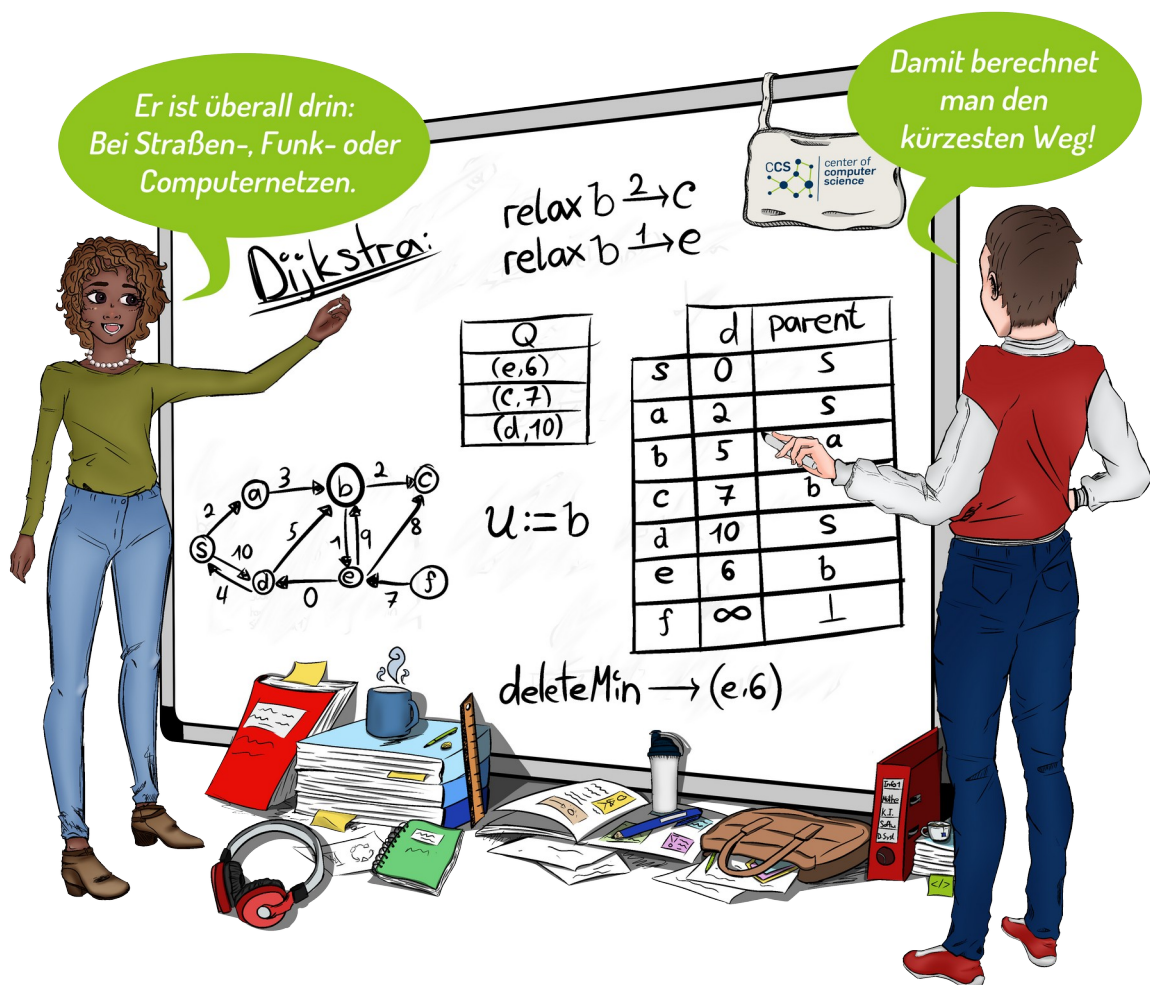 Er ist überall drin:
Bei Straßen-, Funk- oder
Computernetzen.
Damit berechnet
man den
kürzesten Weg!
CCS
center of
computer
science
Dijkstra:
relax b 2→ c
relax b 1→ e
Q
(e,6)
(c,7)
(d,10)
d parent
s 0 s
a 2 s
b 5 a
c 7 b
d 10 s
e 6 b
f ∞ ⊥
a 3 b 2 c
2 5 1 9 8
s 10
4 d 0 e 7 f
u:=b
deleteMin → (e,6)
Info1
Mathe
K.I.
D.Syst.
</>